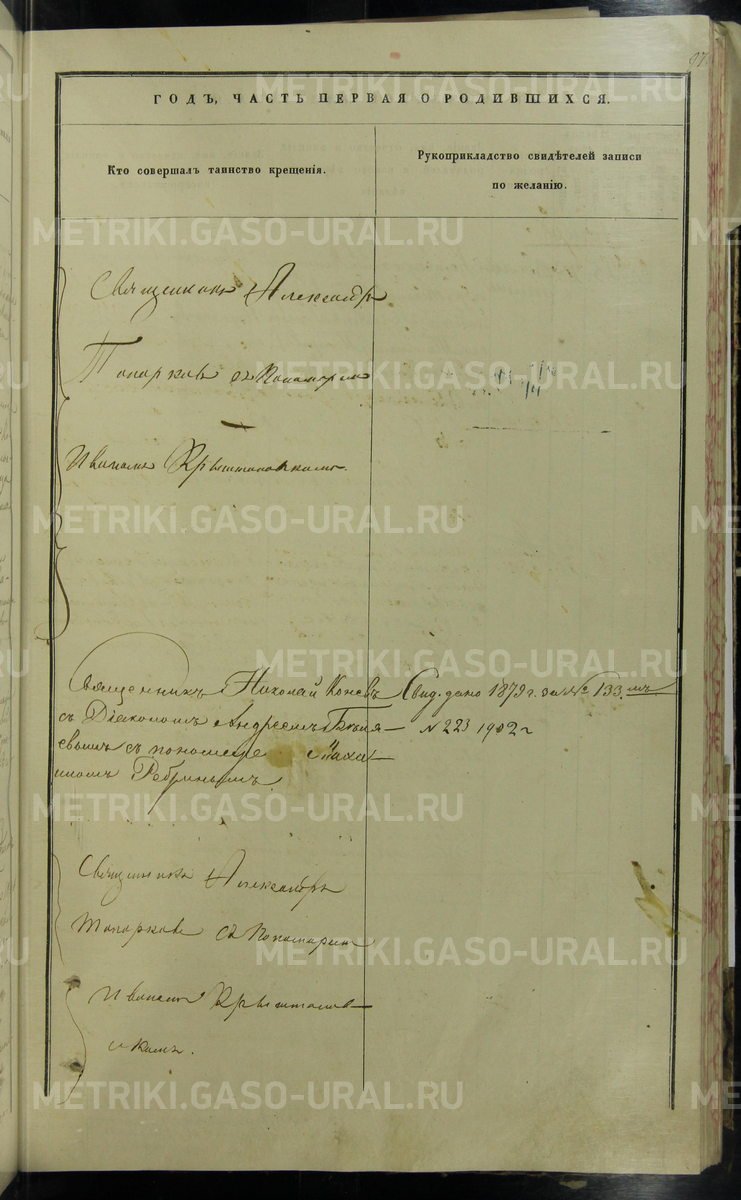 ГОДЪ, ЧАСТЬ ПЕРВАЯ О РОДИВШИХСЯ.
Кто совершалъ таинство крещенія.
Рукоприкладство свидѣтелей записи
по желанію.
Священникъ Александръ
Топорковъ съ Пономаремъ
Иваномъ
Священникъ Николай Коневъ
съ Діакономъ Андреемъ
съ пономаремъ
Ребринымъ.
Свид. дано 1879 г. за № 133.мъ
N 223 1902 г
Священникъ Александръ
Топорковъ съ Пономаремъ
Иваномъ
METRIKI.GASO-URAL.RU